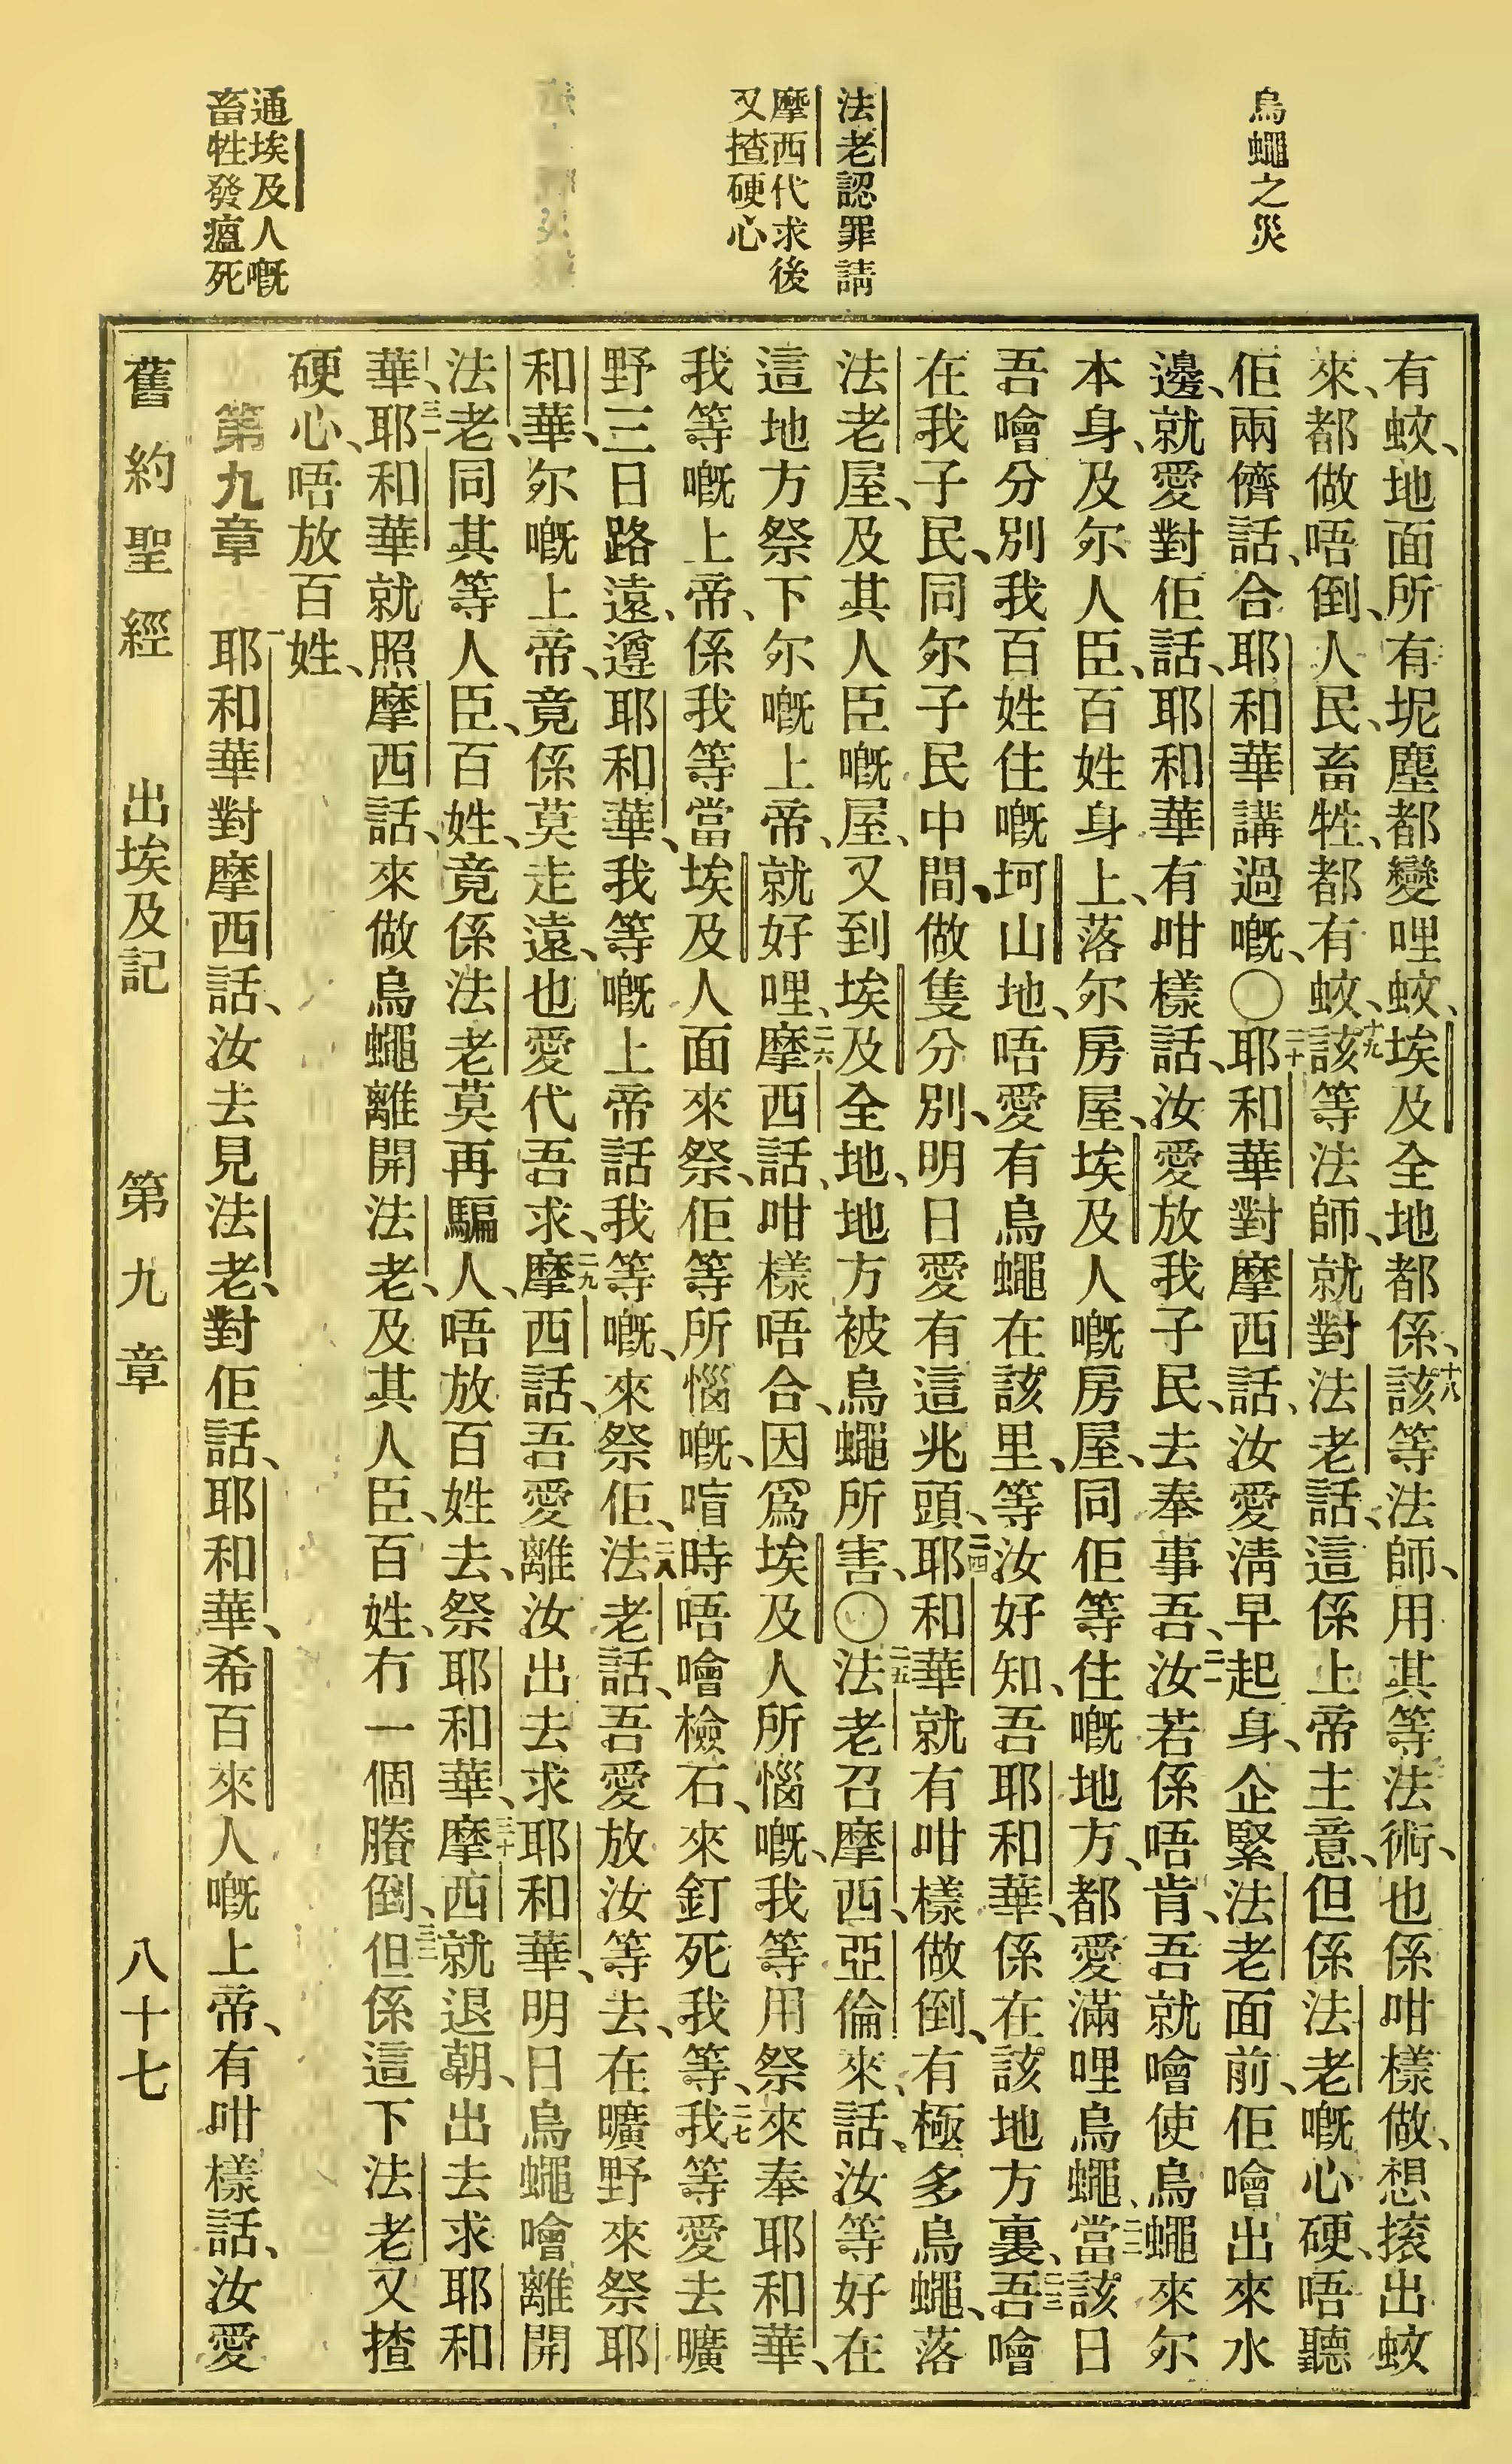 烏蠅之災
法老認罪請
摩西代求後
又揸硬心
通埃及人嘅
畜牲發瘟死
有蚊、地面所有坭塵都變哩蚊、埃及全地都係、十八該等法師、用其等法術、也係咁樣做、想𢲡出蚊
來、都做唔倒、人民、畜牲、都有蚊、十九該等法師、就對法老話、這係上帝主意、但係法老嘅心硬、唔聽
佢兩儕話、合耶和華講過嘅、〇二十耶和華對摩西話、汝愛淸早起身、企緊法老面前、佢噲出來水
邊、就愛對佢話、耶和華有咁樣話、汝愛放我子民、去奉事吾、二一汝若係唔肯、吾就噲使烏蠅來尔
本身、及尔人臣、百姓身上、落尔房屋、埃及人嘅房屋、同佢等住嘅地方、都愛滿哩烏蠅、二二當該日
吾噲分別我百姓住嘅坷山地、唔愛有烏蠅在該里、等汝好知、吾耶和華、係在該地方裏、二三吾噲
在我子民、同尔子民中間、做隻分別、明日愛有這兆頭、二四耶和華就有咁樣做倒、有極多烏蠅、落
法老屋、及其人臣嘅屋、又到埃及全地、地方被烏蠅所害、〇二五法老召摩西、亞倫來、話、汝等好在
這地方祭下尔嘅上帝、就好哩、二六摩西話、咁樣唔合、因爲埃及人所惱嘅、我等用祭來奉耶和華、
我等嘅上帝、係我等當埃及人面來祭、佢等所惱嘅、喑時唔噲檢石、來釘死我等、二七我等愛去曠
野三日路遠、遵耶和華、我等嘅上帝話我等嘅、來祭佢、二八法老話、吾愛放汝等去、在曠野來祭耶
和華、尔嘅上帝、竟係莫走遠、也愛代吾求、二九摩西話、吾愛離汝出去求耶和華、明日烏蠅噲離開
法老、同其等人臣、百姓、竟係法老莫再騙人、唔放百姓去、祭耶和華、三十摩西就退朝、出去求耶和
華、三一耶和華就照摩西話、來做烏蠅離開法老、及其人臣、百姓、冇一個賸倒、三二但係這下法老又揸
硬心、唔放百姓、
第九章 一耶和華對摩西話、汝去見法老、對佢話、耶和華、希百來人嘅上帝、有咁樣話、汝愛
舊約聖經 出埃及記 第九章 八十七